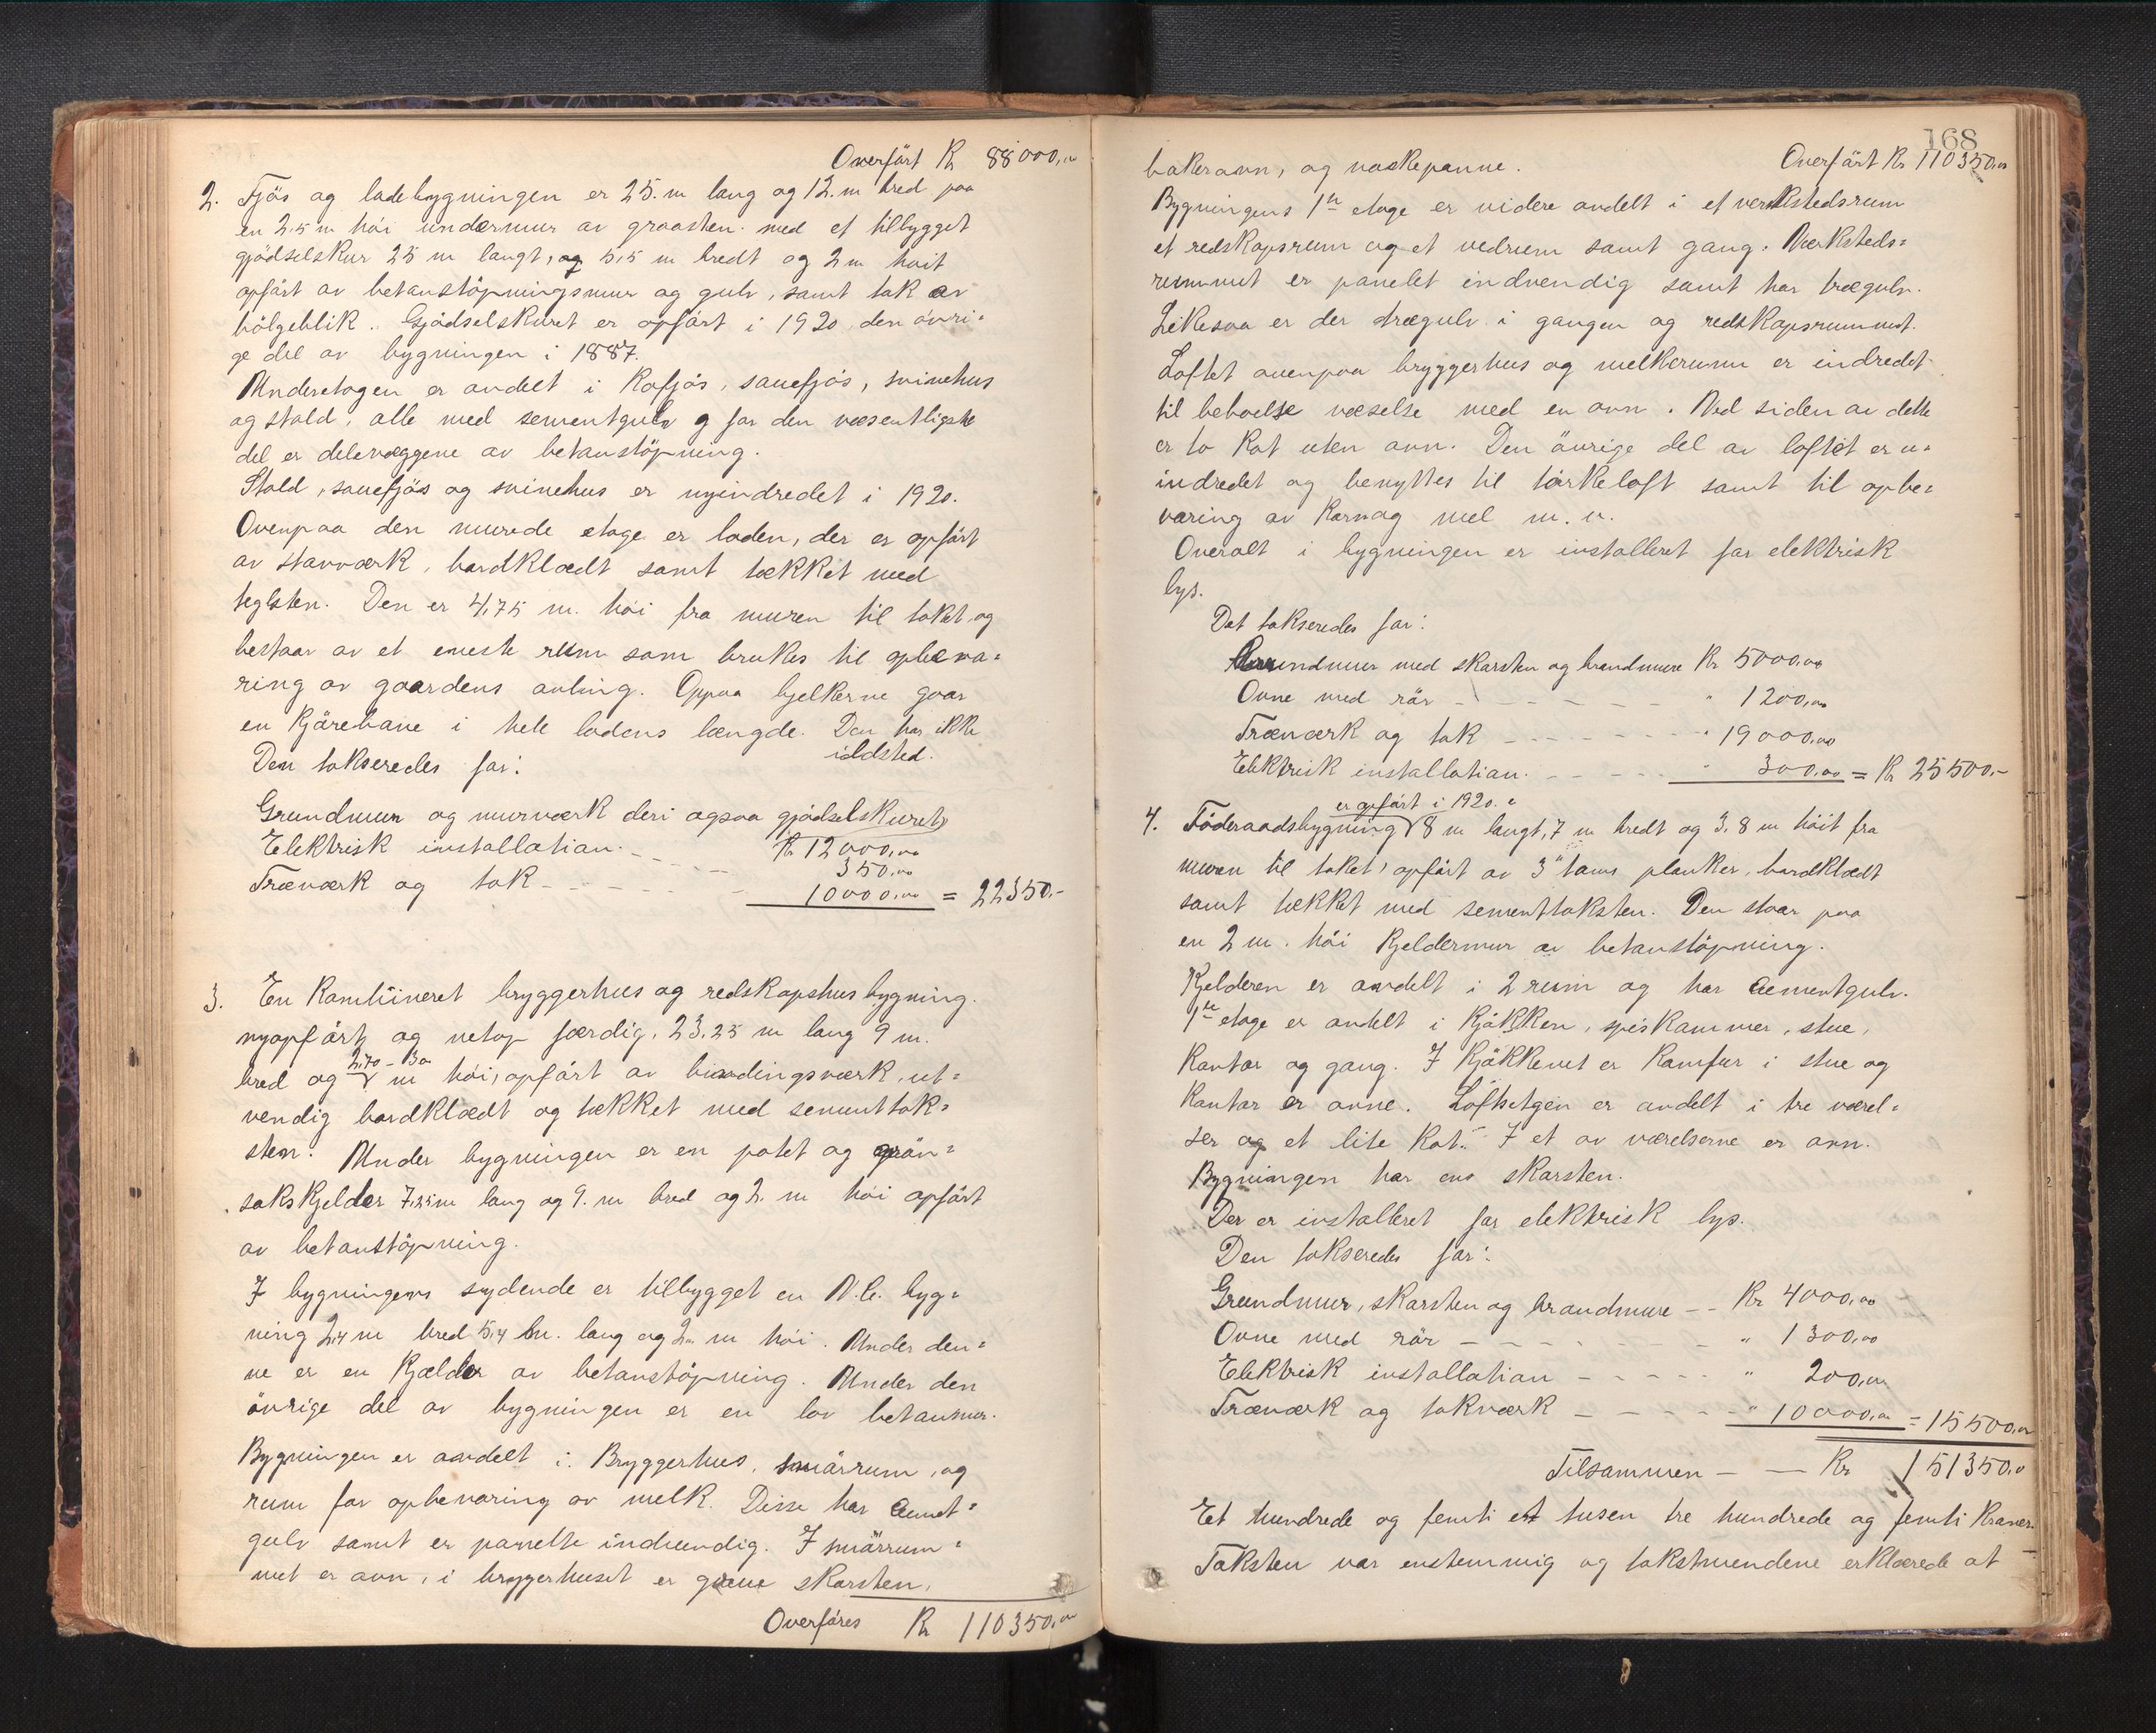 Overført Kr 88000,00
2. Fjös og ladebygningen er 25. m lang og 12. m bred paa
en 2.5 m höi undermur av graasten. med et tilbygget
gjödselskur 25 m langt, og 5,5 m bredt og 2 m höit
opfört av betonstöpningsmur og gulv, samt tak av
bölgeblik. Gjödselskuret er opfört i 1920, den övri-
ge del av bygningen i 1887.
Underetagen er avdelt i kofjös, sauefjös, svinehus
og stald, alle med sementgulv og for den væsentligste
del er delevæggene av betonstöpning.
Stald, sauefjös og svinehus er nyindredet i 1920.
Ovenpaa den murede etage er laden, der er opfört
av stavværk, bordklædt samt tækket med
teglsten. Den er 4,75 m. höi fra muren til taket, og
bestaar av et eneste rum som brukes til opbeva-
ring av gaardens avling. Oppaa bjelkerne gaar
en kjörebane i hele ladens længde. Den har ikke
ildsted.
Den takseredes for:
Grundmur og murværk deri ogsaa gjödselskuret
Kr 12000,00
Elektrisk installation. - - - 350,00
Træværk og tak - - - - 10000,00 = 22350.-
3. En kombineret bryggerhus og redskapshusbygning.
nyopfört og netop færdig, 23,25 m lang 9 m.
2,70 - 3,0
bred og m höi, opfört av bindingsværk, ut-
vendig bordklædt og tækket med sementtak-
sten. Under bygningen er en potet og grön-
sakskjelder 7,25 m lang og 9. m bred og 2. m höi opfört
av betonstöpning.
I bygningens sydende er tilbygget en V.C. byg-
ning 2,4 m bred 5,4 m. lang og 2 m höi. Under den-
ne er en kjælder av betonstöpning. Under den
övrige del av bygningen er en lav betonmur.
Bygningen er avdelt i: Bryggerhus, smörrum, og
rum for opbevaring av melk. Disse har cement-
gulv samt er panelte indvendig. I smörrum-
met er ovn, i bryggerhuset er grue skorsten,
Overföres Kr 110350,00
168
Overfört Kr 110350,00
bakerovn, og vaskepanne.
Bygningens 1ste etage er videre avdelt i et verkstedsrum
et redskapsrum og et vedrum samt gang. Værksteds-
rummet er panelet indvendig samt har trægulv.
Likesaa er der trægulv i gangen og redskapsrummet.
Loftet ovenpaa bryggerhus og melkerum er indredet
til beboelse væselse med en ovn. Ved siden av dette
er to kot uten ovn. Den övrige del av loftet er u-
indredet og benyttes til törkeloft samt til opbe-
varing av korn og mel m. v.
Overalt i bygningen er installeret for elektrisk
lys.
Det takseredes for:
Grundmur med skorsten og brandmure Kr 5000,00
Ovne med rör - - - - - " 1200,00
Træværk og tak - - - - - " 19000,00
Elektrisk installation. - - - - " 300,00 = Kr 25500.-
er opfört i 1920.
4. Föderaadsbygning 8 m langt, 7 m bredt og 3,8 m höit fra
muren til taket, opfört av 3" toms planker, bordklædt
samt tækket med sementtaksten. Den staar paa
en 2 m. höi kjeldermur av betonstöpning.
Kjelderen er avdelt i 2 rum og har cementgulv.
1ste etage er avdelt i kjökken, spiskammer, stue,
kontor og gang. I kjökkenet er komfur i stue og
kontor er ovne. Loftsetgen er avdelt i tre værel-
ser og et lite kot. I et av værelserne er ovn.
Bygningen har en skorsten.
Der er installeret for elektrisk lys.
Den takseredes for:
Grundmur, skorsten og brandmure - - Kr 4000,00
Ovne med rör - - - - - " 1300,00
Elektrisk installation - - - - " 200,00
Træværk og takværk - - - - " 10000,00 = 15500,00
Tilsammen - - Kr 151350,00
Et hundrede og femti et tusen tre hundrede og femti kroner.
Taksten var enstemmig og takstmendene erklærede at